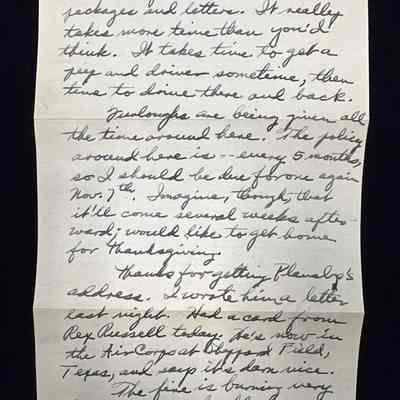 packages and letters. It really
takes more time than you'd
think. It takes time to get a
jeep and driver sometime, then
time to drive there and back.
Furloughs are being given all
the time around here. The policy
around here is -- every 5 months,
so I should be due for one again
Nov. 7th. Imagine, though, that
it'll come several weeks after-
ward; would like to get home
for Thanksgiving.
Thanks for getting
address. I wrote him a letter
last night. Had a card from
Rex Russell today. He's now in
the Air Corps at Sheppard Field,
Texas, and says it's darn nice.
The fire is burning very